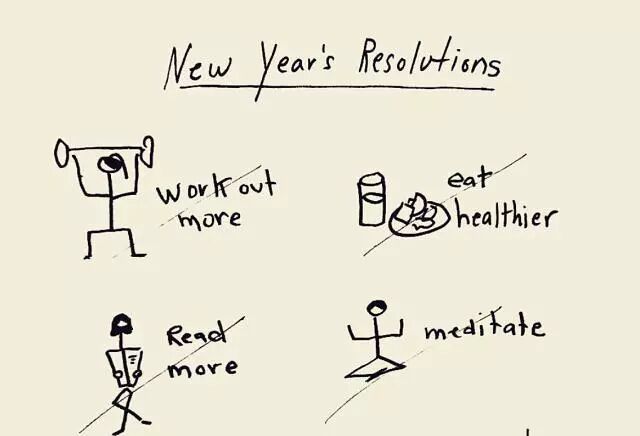 New Year's Resolutions
Work out
more
eat
healthier
Read
more
meditate